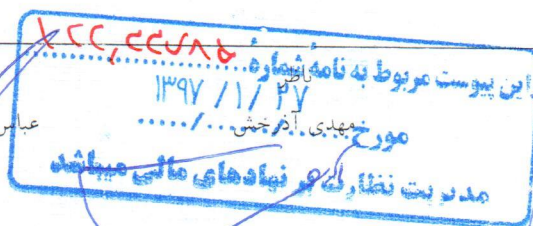 این پیوست مربوط به نامه شماره
ناظر
۱۳۹۷ /۱/ ۲۷
مورخ ...../...../.....
مهدی آذرخشی
عباس
مدیریت نظارت بر نهادهای مالی میباشد